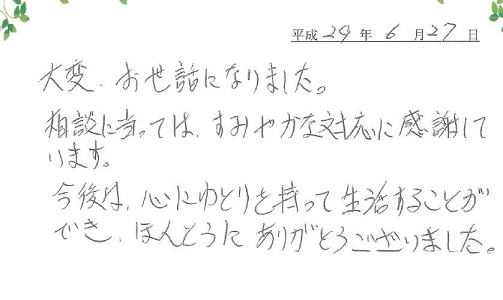 平成 29 年 6 月 27 日
大変、お世話になりました。
相談に当っては、すみやかな対応に感謝して
います。
今後は、心にゆとりを持って生活することが
でき、ほんとうにありがとうございました。